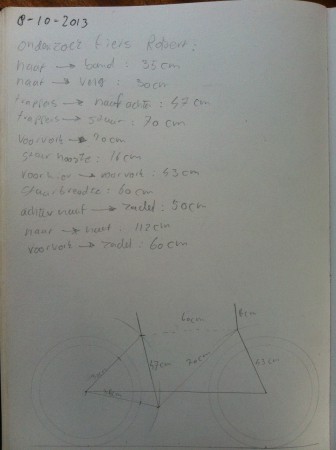 8-10-2013
onderzoek fiets Robert:
naaf → band: 35cm
naaf → velg: 30cm
trapas → naaf achter: 47cm
trapas → stuur: 70cm
voorvork → 70cm
stuur hoogte: 16cm
voorvork: 53cm
stuurbreedte: 60cm
achter naaf → zadel: 50cm
naaf → naaf: 112cm
voorvork → zadel: 60cm
60cm
8cm
57cm
70cm
53cm